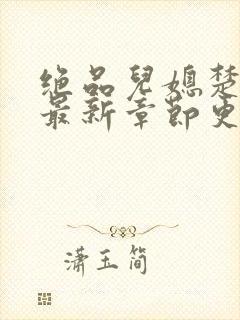 绝品儿媳楚
最新章节更
潇玉简